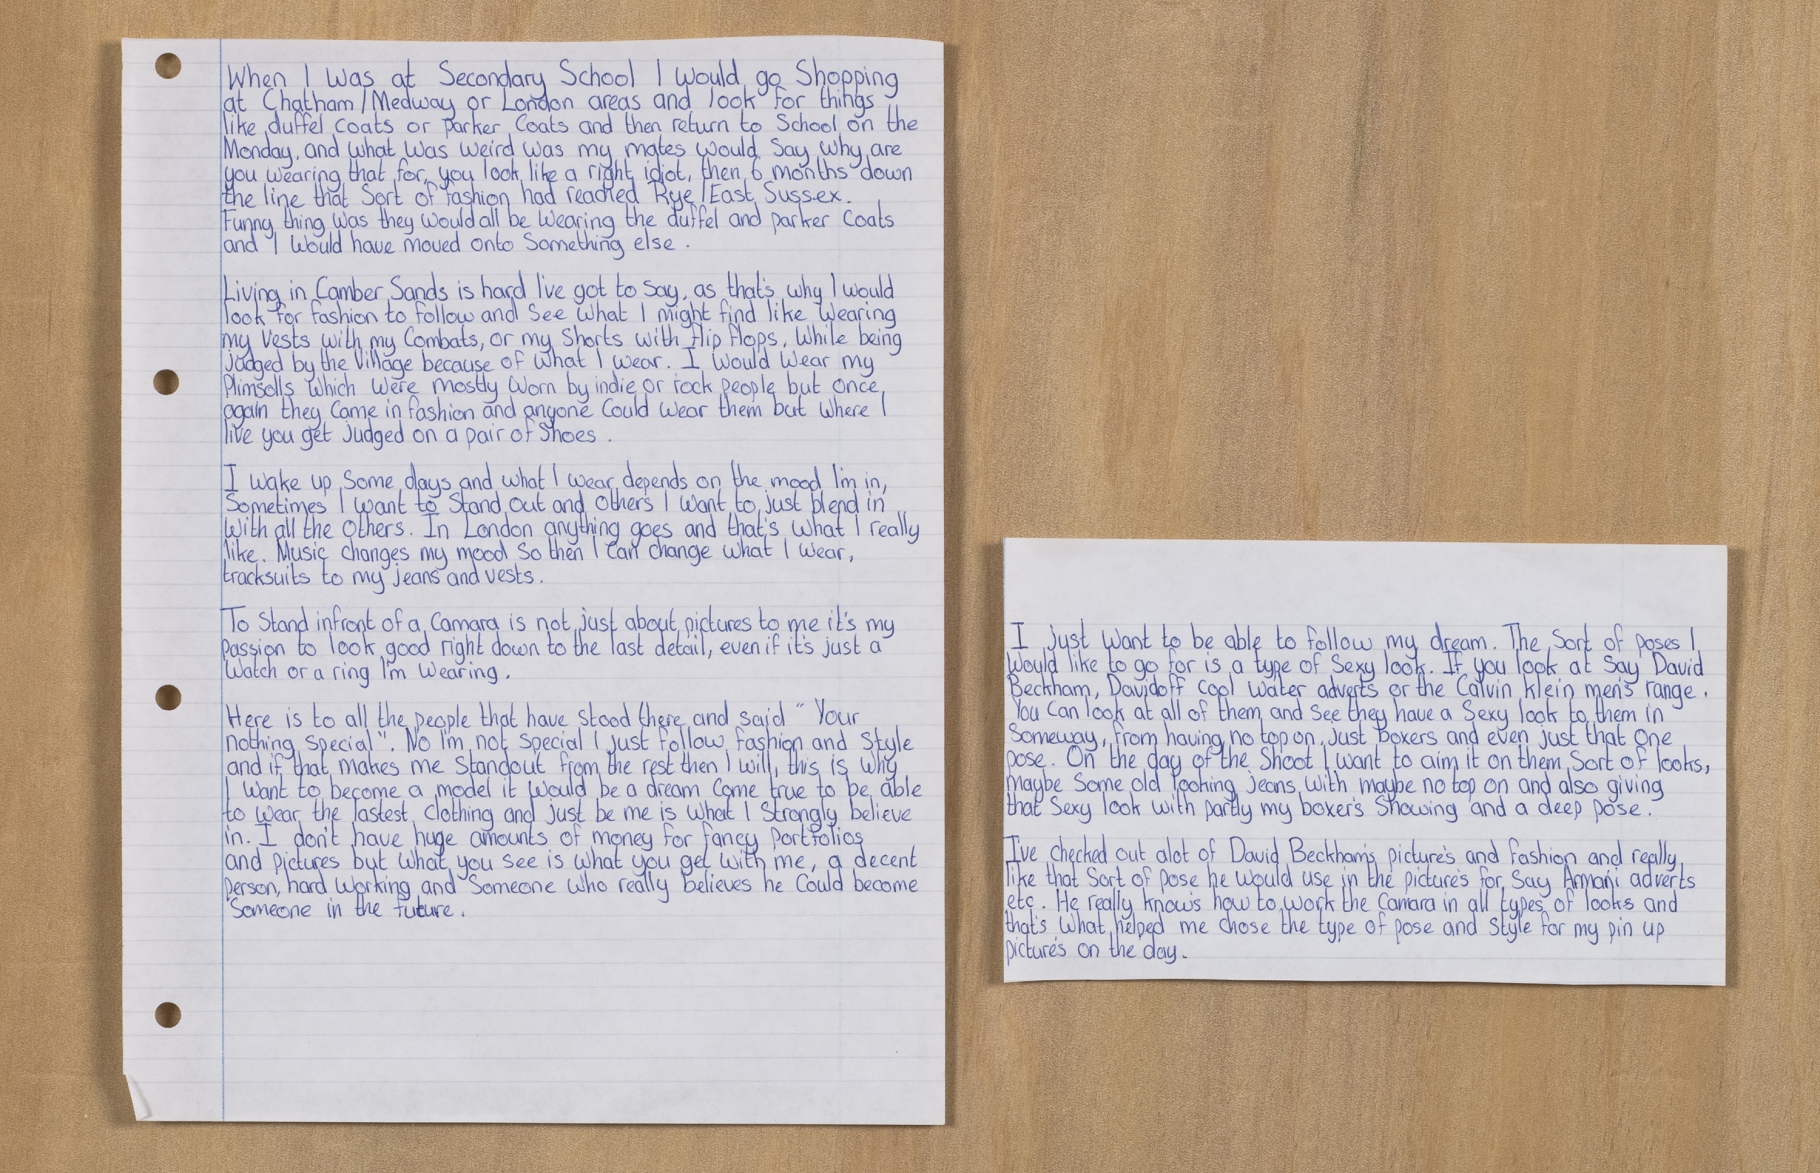 When I was at Secondary School I would go Shopping
at Chatham/Medway or London areas and look for things
like duffel coats or parker Coats and then return to School on the
Monday, and what was weird was my mates would Say why are
you wearing that for, you look like a right idiot, then 6 months down
the line that Sort of fashion had reached Rye/East Sussex.
Funny thing was they would all be wearing the duffel and parker Coats
and I would have moved onto Something else.
Living in Camber Sands is hard I've got to say, as that's why I would
look for fashion to follow and See what I might find like wearing
my Vests with my Combats, or my Shorts with flip flops, while being
judged by the Village because of what I wear. I would wear my
Plimsolls which were mostly worn by indie or rock people but once
again they Came in fashion and anyone Could wear them but where I
live you get judged on a pair of Shoes.
I wake up Some days and what I wear depends on the mood I'm in,
Sometimes I want to Stand out and others I want to just blend in
with all the others. In London anything goes and that's what I really
like. Music changes my mood So then I can change what I wear,
tracksuits to my jeans and vests.
To Stand infront of a Camara is not just about pictures to me it's my
passion to look good right down to the last detail, even if it's just a
Watch or a ring I'm wearing.
Here is to all the people that have stood there and said "Your
nothing special". No I'm not special I just follow fashion and Style
and if that makes me Standout from the rest then I will, this is why
I want to become a model it would be a dream Come true to be able
to wear the lastest Clothing and just be me is what I Strongly believe
in. I don't have huge amounts of money for fancy Portfolios
and pictures but what you see is what you get with me, a decent
person, hard working and Someone who really believes he Could become
Someone in the future.
I just want to be able to follow my dream. The Sort of poses I
would like to go for is a type of Sexy look. If you look at Say David
Beckham, Davidoff Cool Water adverts or the Calvin Klein men's range.
You Can look at all of them and see they have a Sexy look to them in
Someway, from having no top on, just boxers and even just that one
pose. On the day of the Shoot I want to aim it on them Sort of looks,
maybe Some old looking jeans with maybe no top on and also giving
that Sexy look with partly my boxer's Showing and a deep pose.
I've checked out alot of David Beckham's picture's and fashion and really
like that Sort of pose he would use in the picture's for Say Armani adverts
etc. He really know's how to work the Camara in all types of looks and
that's what helped me chose the type of pose and Style for my pin up
picture's on the day.